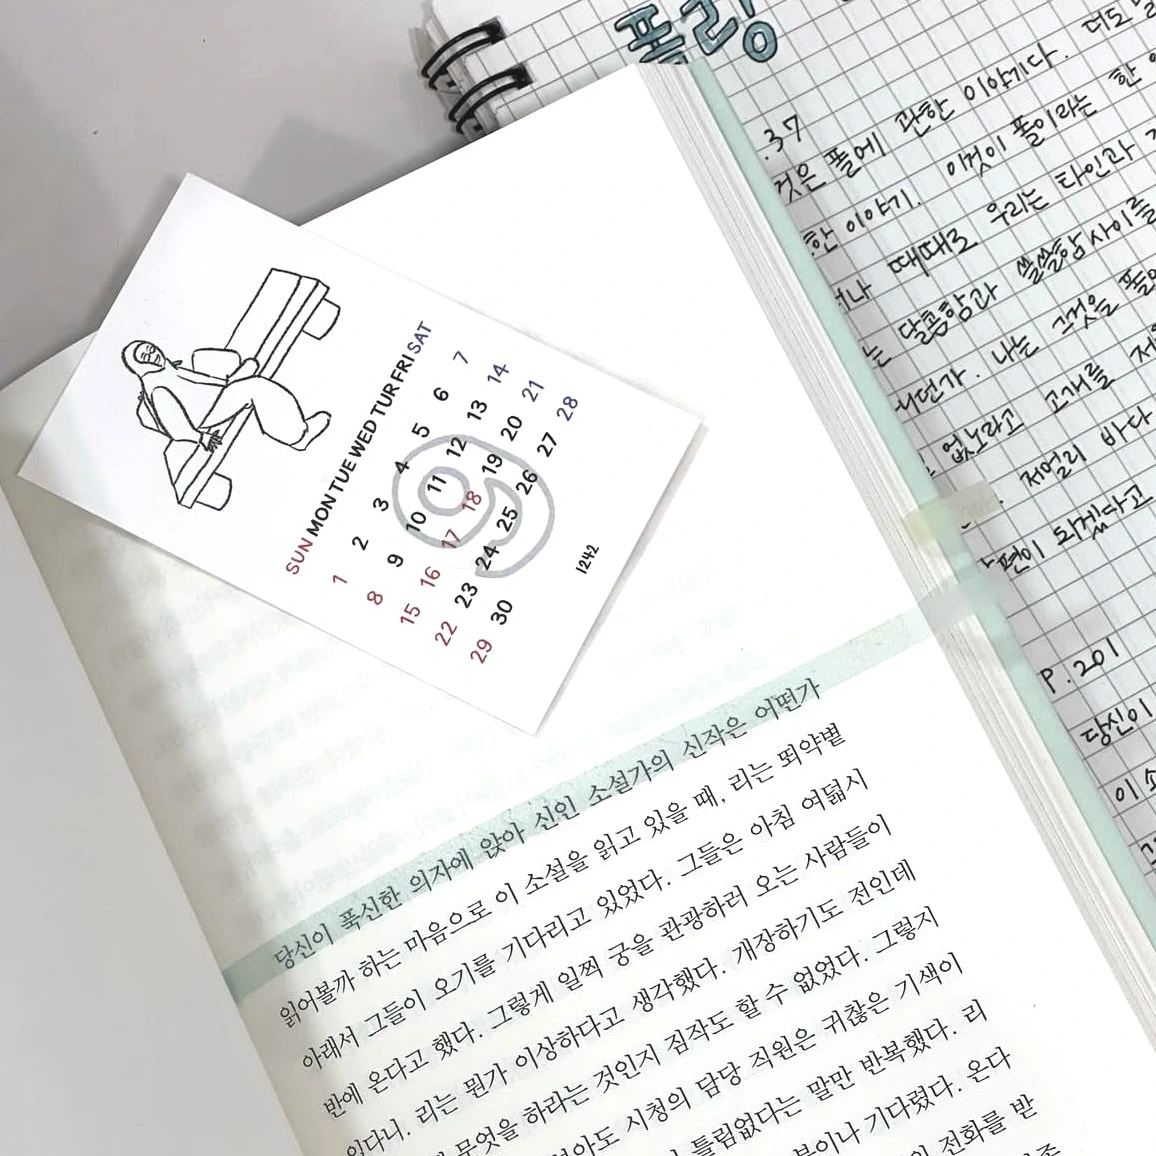 폴링
.37
것은 폴에 관한 이야기다. 더도
한 이야기. 이것이 폴이라는 한
때때로 우리는 타인과
는 달콤함과 쓸쓸함 사이를
던가. 나는 그것을
없노라고 고개를
저멀리 바다
편이 되겠다고
P.201
당신이
SUN MON TUE WED TUR FRI SAT
1 2 3 4 5 6 7
8 9 10 11 12 13 14
15 16 17 18 19 20 21
22 23 24 25 26 27 28
29 30
9
1242
당신이 푹신한 의자에 앉아 신인 소설가의 신작은 어떤가
읽어볼까 하는 마음으로 이 소설을 읽고 있을 때, 리는 뙤약볕
아래서 그들이 오기를 기다리고 있었다. 그들은 아침 여덟시
반에 온다고 했다. 그렇게 일찍 궁을 관광하러 오는 사람들이
있다니. 리는 뭔가 이상하다고 생각했다. 개장하기도 전인데
무엇을 하라는 것인지 짐작도 할 수 없었다. 그렇지
시청의 담당 직원은 귀찮은 기색이
틀림없다는 말만 반복했다. 리
기다렸다. 온다
전화를 받